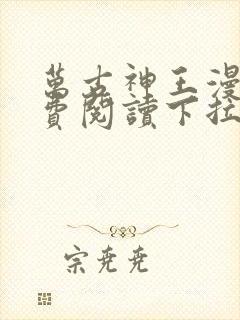 萬古神王漫
費閱讀下拉
宗堯堯